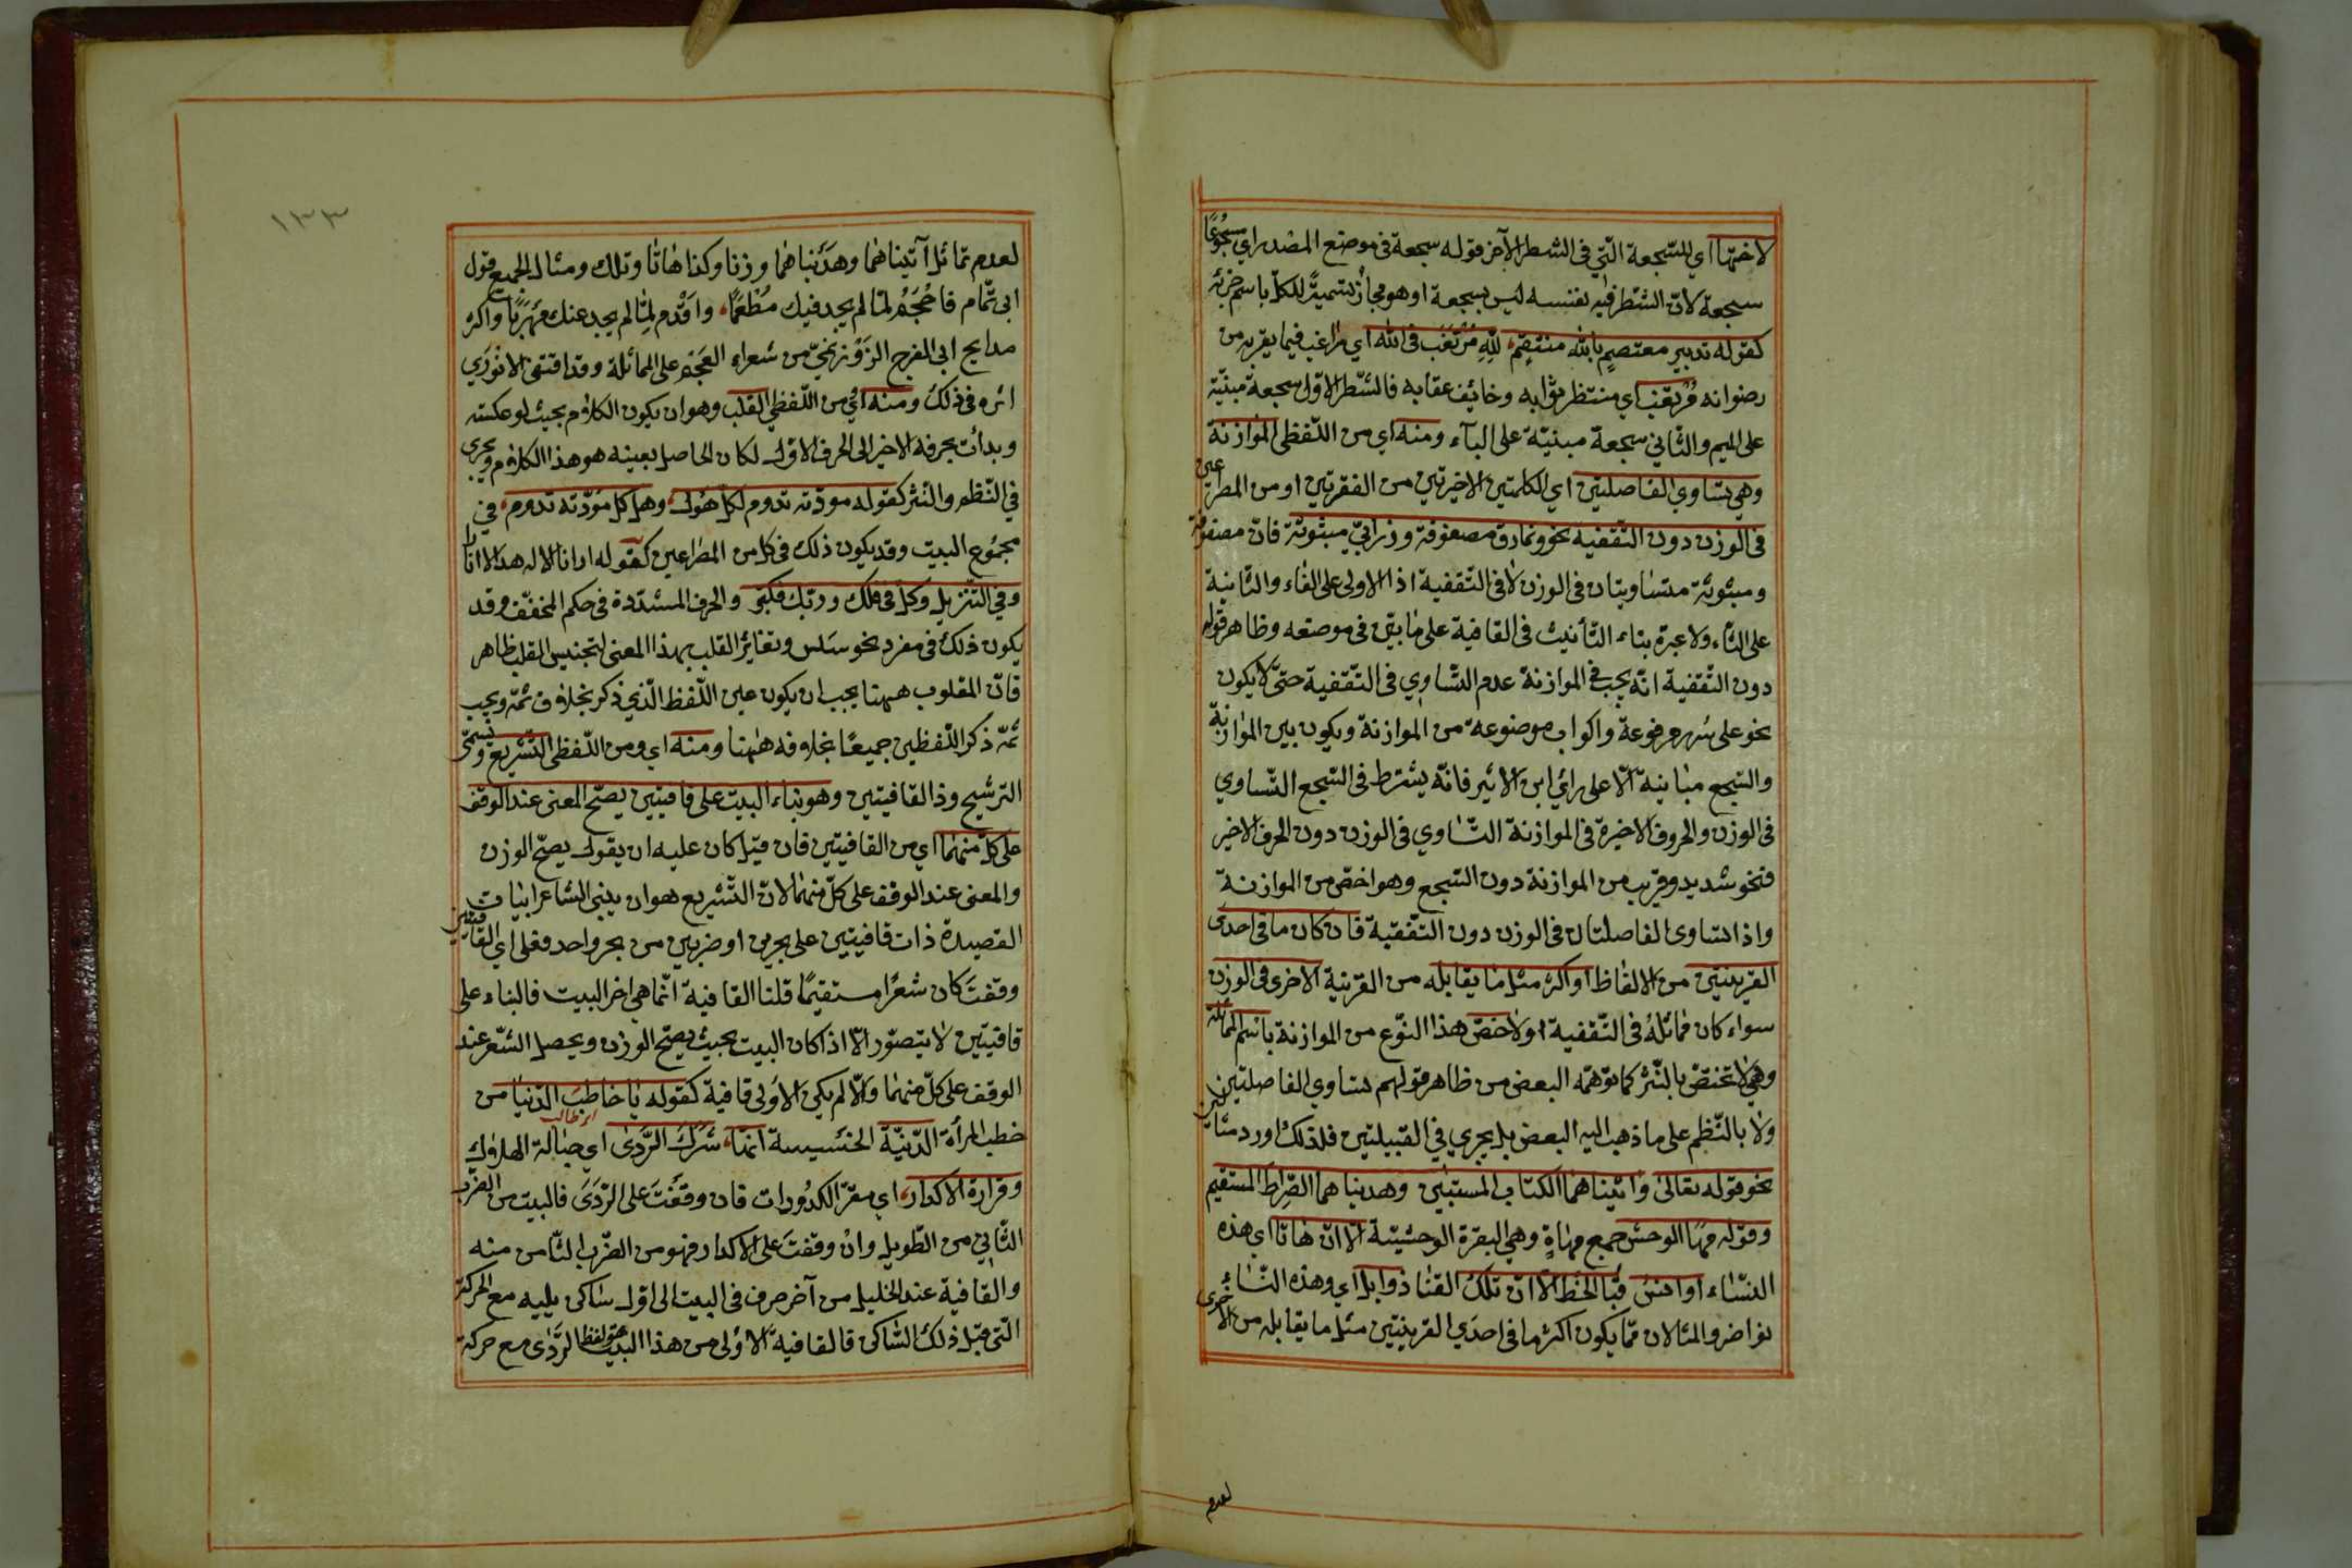 لاختها اي للسّجعة الّتي في الشطر الآخر قوله سجعة في موضع المصدر اي مسجوعًا
سجعة لانّ الشطر فيه بنفسه ليس بسجعة او هو مجاز تسميةً للكلّ باسم جزئه
كقوله تدبير معتصمٍ بالله منتقمٍ، للهِ مُرتغب في الله اي راغب فيما يقربه من
رضوانه مُرتقب اي منتظر ثوابه وخائف عقابه فالشّطر الاوّل سجعة مبنيّة
على الميم والثّاني سجعة مبنيّة على البآء ومنه اي من اللّفظي الموازنة
وهي تساوي الفاصلتين اي الكلمتين الاخيرتين من الفقرتين او من المصراعين
في الوزن دون التّقفية نحو ونمارق مصفوفة وزرابيّ مبثوثة فانّ مصفوفة
ومبثوثة متساويتان في الوزن لا في التّقفية اذ الاولى على الفاء والثّانية
على الثّاء ولا عبرة بتاء التّأنيث في القافية على ما بيّن في موضعه وظاهر قوله
دون التّقفية انّه يجب في الموازنة عدم التّساوي في التّقفية حتّى لا يكون
نحو على سُرر مرفوعة واكواب موضوعة من الموازنة ويكون بين الموازنة
والسّجع مباينة الّا على رأي ابن الاثير فانّه يشترط في السّجع التّساوي
في الوزن والحروف الاخيرة في الموازنة التّساوي في الوزن دون الحرف الاخير
فنحو شديد وقريب من الموازنة دون السّجع وهو اخصّ من الموازنة
واذا تساوى الفاصلتان في الوزن دون التّقفية فان كان ما في احدى
القرينتين من الالفاظ او اكثر مثل ما يقابله من القرينة الاخرى في الوزن
سواء كان مماثله في التّقفية او لا خصّ هذا النّوع من الموازنة باسم المماثلة
وهي لا تختصّ بالنّثر كما توهّمه البعض من ظاهر قولهم تساوي الفاصلتين
ولا بالنّظم على ما ذهب اليه البعض بل يجري في القبيلتين فلذلك اورد مثالين
نحو قوله تعالى واتيناهما الكتاب المستبين وهديناهما الصّراط المستقيم
وقوله مها الوحش جمع مهاةٍ وهي البقرة الوحشيّة الّا انّ هاتا اي هذه
النّساء اوانس قنا الخط الّا انّ تلك القنا ذوابل اي وهذه النّساء
نواضر والمثالان ممّا يكون اكثر ما في احدى القرينتين مثل ما يقابله من الاخرى
لعدم
١٣٣
لعدم تماثل آتيناهما وهديناهما وزنا وكذا هاتا وتلك ومثال الجميع قول
ابي تمّام فاحجم لمّا لم يجد فيك مُطمعًا، واقدم لمّا لم يجد عنك مهربًا واكثر
مدايح ابي الفرج الرّوني من شعراء العجم على المماثلة وقد اقتفى الانوري
اثره في ذلك ومنه اي من اللّفظي القلب وهو ان يكون الكلام بحيث لو عكسته
وبدأت بحرفه الاخير الى الحرف الاوّل لكان الحاصل بعينه هو هذا الكلام ويجري
في النّظم والنّثر كقوله مودّته تدوم لكلّ هول، وهل كلّ مودّته تدوم، في
مجموع البيت وقد يكون ذلك في كلّ من المصراعين كقوله ارانا الاله هلالا انارا
وفي التّنزيل وكلّ في فلك وربّك فكبّر والحرف المشدّدة في حكم المخفّف وقد
يكون ذلك في مفرد نحو سلس وتغاير القلب بهذا المعنى لتجنيس القلب ظاهر
فانّ المقلوب ههنا يجب ان يكون عين اللّفظ الّذي ذكر بخلاف ثمّه ويجب
ثمّه ذكر اللّفظين جميعًا بخلافه ههنا ومنه اي ومن اللّفظي التّشريع ويسمّى
الترشيح وذا القافيتين وهو بناء البيت على قافيتين يصحّ المعنى عند الوقف
على كلّ منهما اي من القافيتين فان قيل كان عليه ان يقول يصحّ الوزن
والمعنى عند الوقف على كلّ منهما لانّ التّشريع هو ان يبنى الشاعر ابيات
القصيدة ذات قافيتين على بحرين او ضربين من بحر واحد فعلى اي القافيتين
وقفت كان شعرًا مستقيمًا قلنا القافية انّما هي اخر البيت فالبناء على
قافيتين لا يتصوّر الّا اذا كان البيت بحيث يصحّ الوزن ويحصل الشّعر عند
الوقف على كلّ منهما والّا لم يكن الاولى قافية كقوله يا خاطب الدّنيا من
خطب المرأة الدّنيّة الخسيسة انّها، شرك الرّدى اي حبالة الهلاك
وقرارة الاكدار، اي مقرّ الكدورات فان وقفت على الرّدى فالبيت من الضّرب
الثّاني من الطّويل وان وقفت على الاكدار فهو من الضّرب الثّامن منه
والقافية عند الخليل من آخر حرف في البيت الى اوّل ساكن يليه مع الحركة
الّتي قبل ذلك السّاكن فالقافية الاولى من هذا البيت هو لفظ الرّدى مع حركة